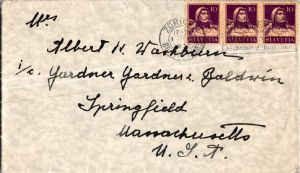 Mrs
Albert H. Washburn
i/c. Gardner Gardner & Baldwin
Springfield
Massachusetts
U. S. A.
10 10 10
HELVETIA HELVETIA HELVETIA
ZÜRICH